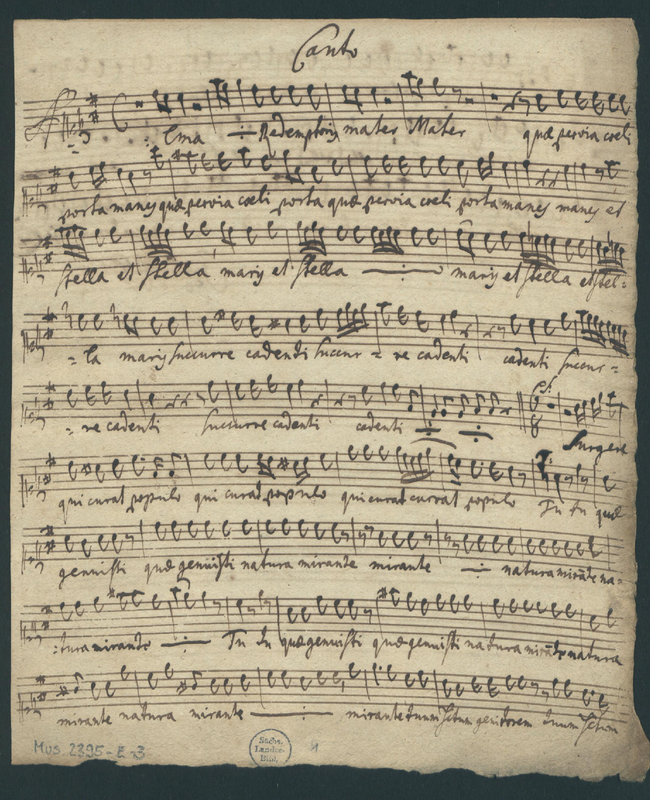 Canto
Alma Redemptoris mater Mater quæ pervia coeli
porta manes quæ pervia cœli porta quæ pervia coeli porta manes manes et
stella et stella maris et stella maris et stella et stel=
=la maris succurre cadenti succur= re cadenti cadenti succur=
=re cadenti succurre cadenti cadenti Surgere
qui curat populo qui curat populo qui curat currat populo Tu tu quæ
genuisti quæ genuisti natura mirante mirante natura mirāte na=
=tura mirante Tu tu quæ genuisti quæ genuisti natura mirāte natura
mirante natura mirante mirante tuum sctum genitorem tuum sctum
Mus. 2395-E-3
Sächs.
Landes-
Bibl.